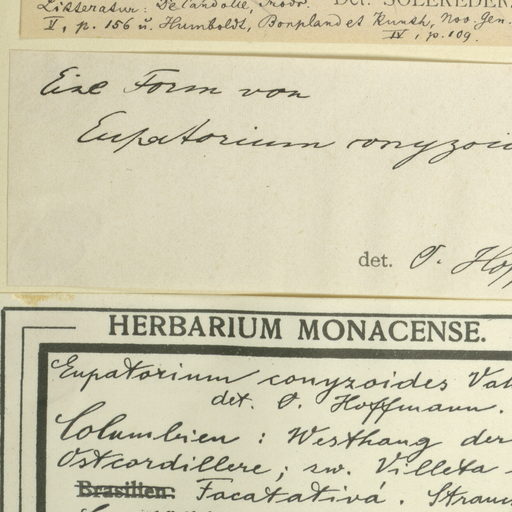 Litteratur: De Candolle, Prodr. Det. SOLEREDER.
V, p. 156 u. Humboldt, Bonpland et Kunth, Nov. Gen.
IV, p. 109.
Eine Form von
Eupatorium conyzoi
det. O. Hoff
HERBARIUM MONACENSE.
Eupatorium conyzoides Vah
det. O. Hoffmann.
Columbien: Westhang der
Ostcordillere; zw. Villeta
Brasilien: Facatativá. Strauc